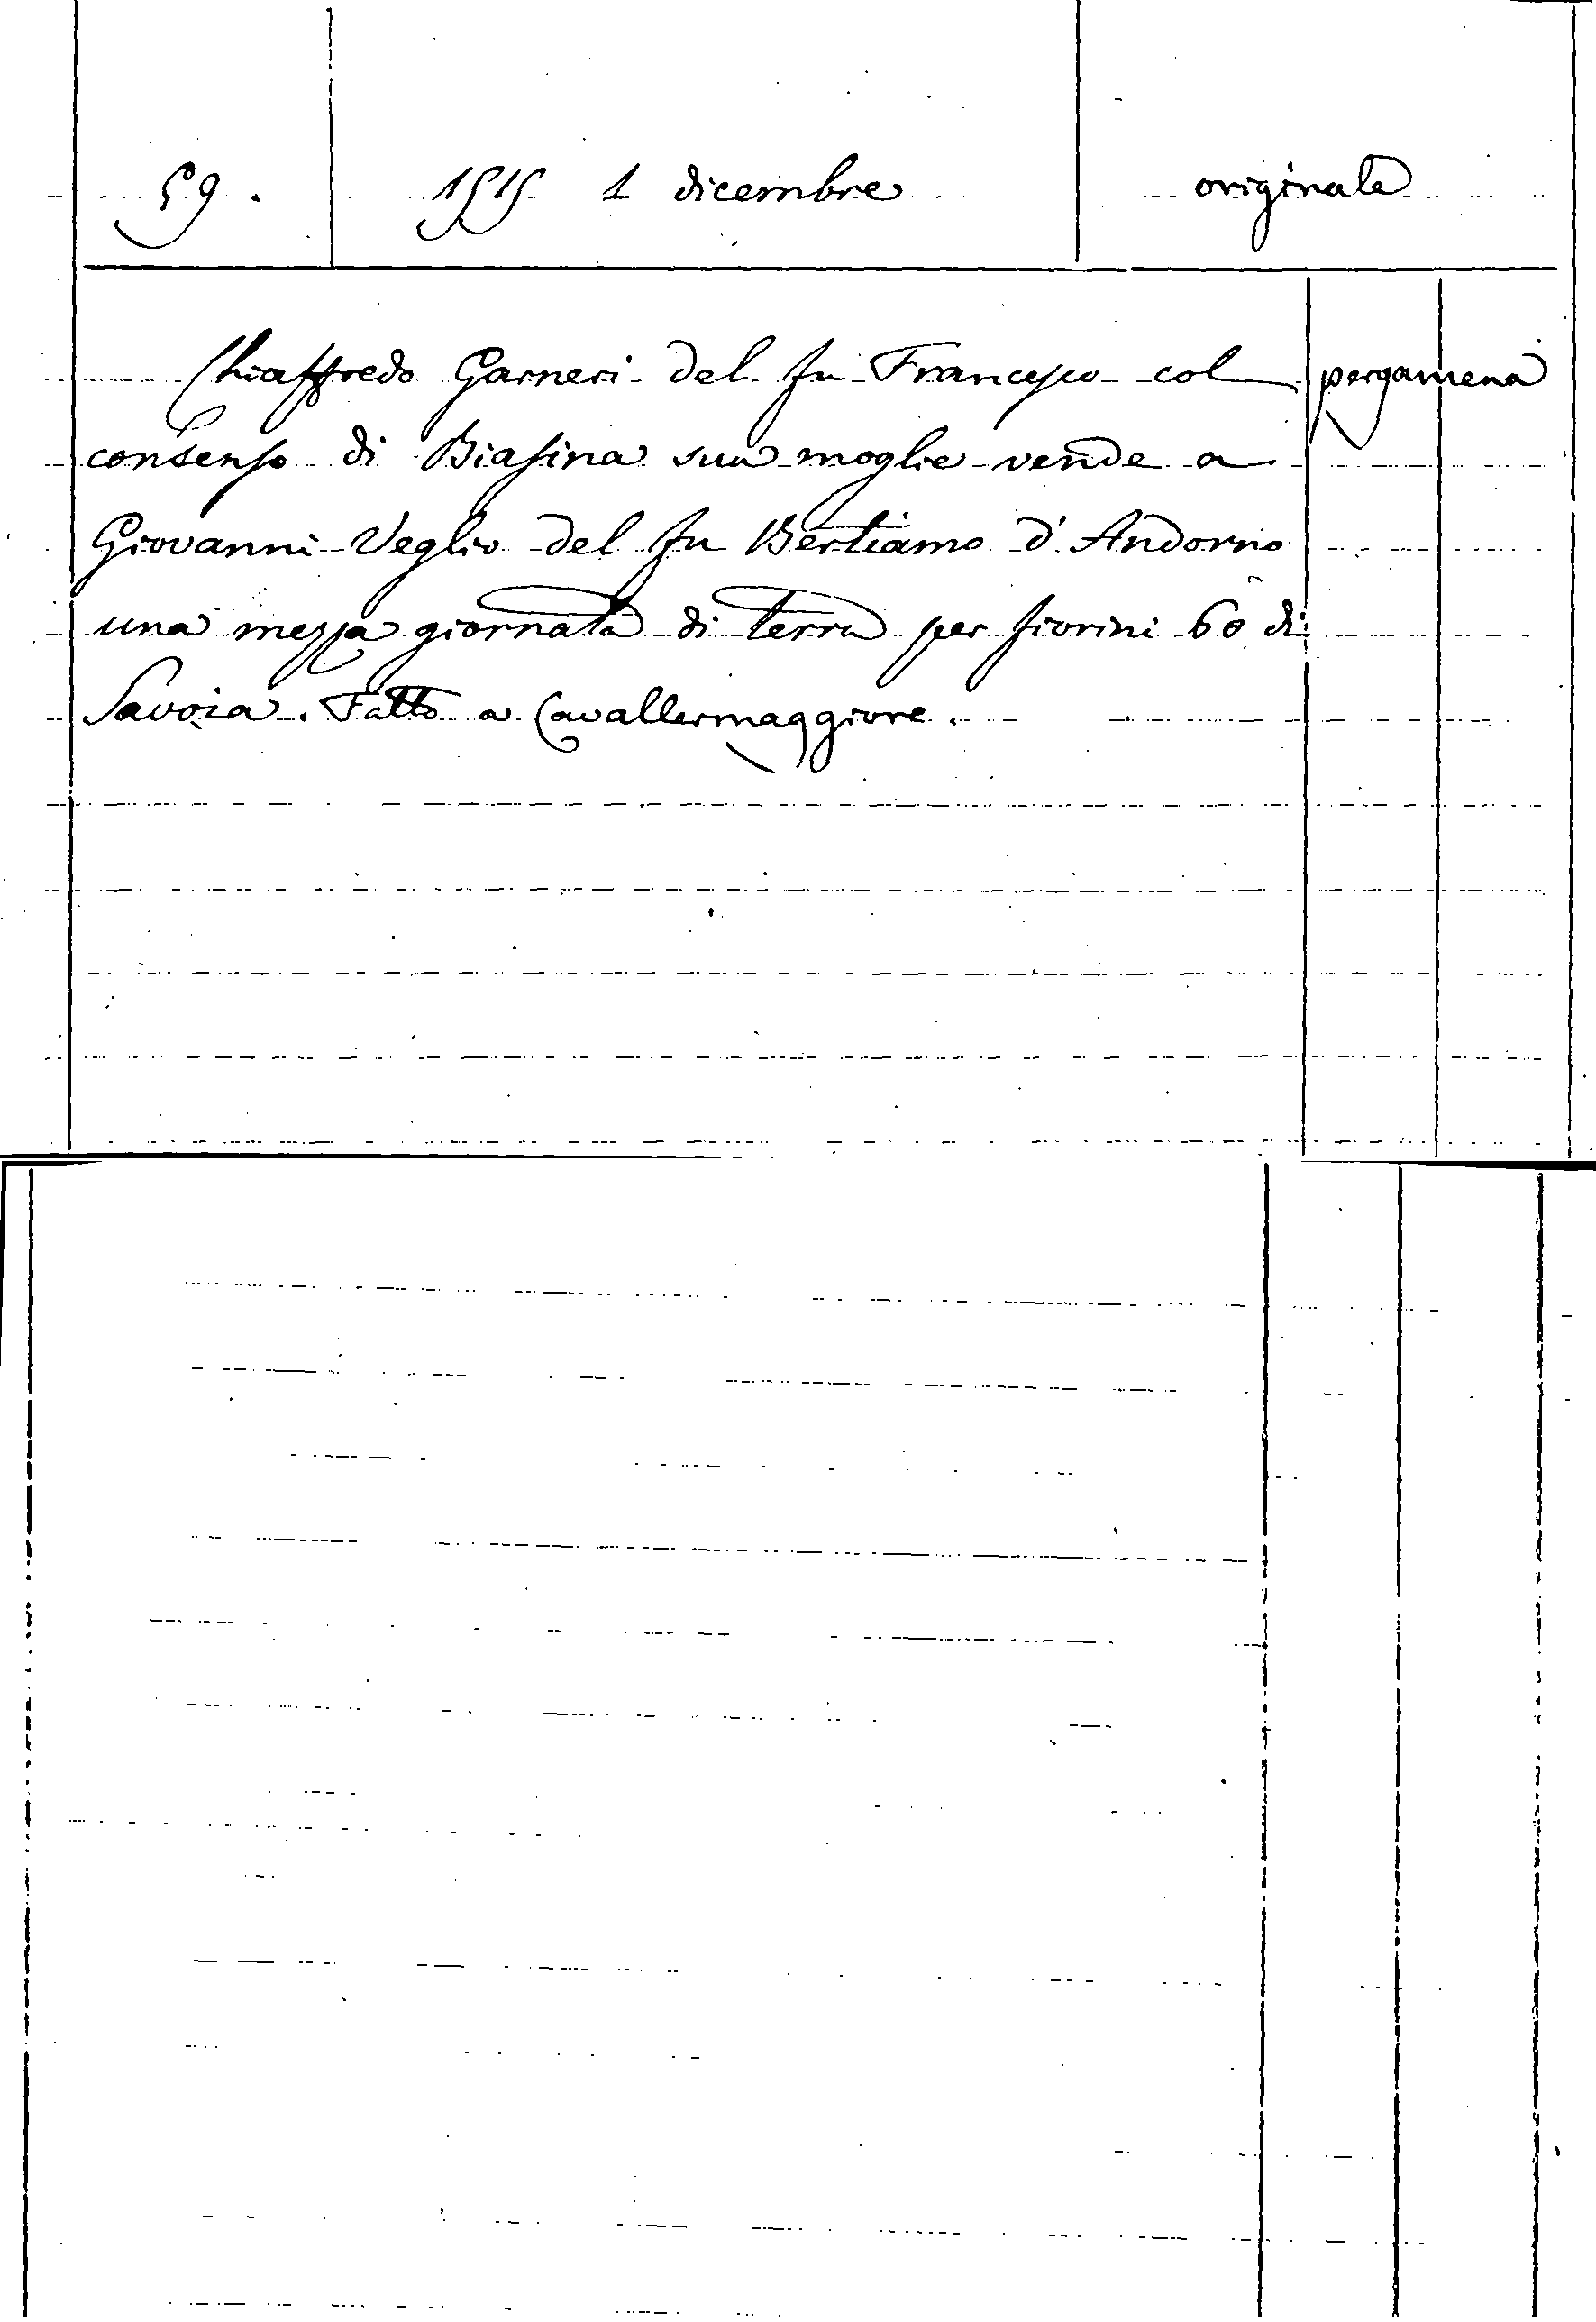 59. 1515 1 dicembre originale
Chiaffredo Garneri del fu Francesco col pergamena
consenso di Biasina sua moglie vende a
Giovanni Veglio del fu Bertiamo d'Andorno
una mezza giornata di terra per fiorini 60 di
Savoia. Fatto a Cavallermaggiore.